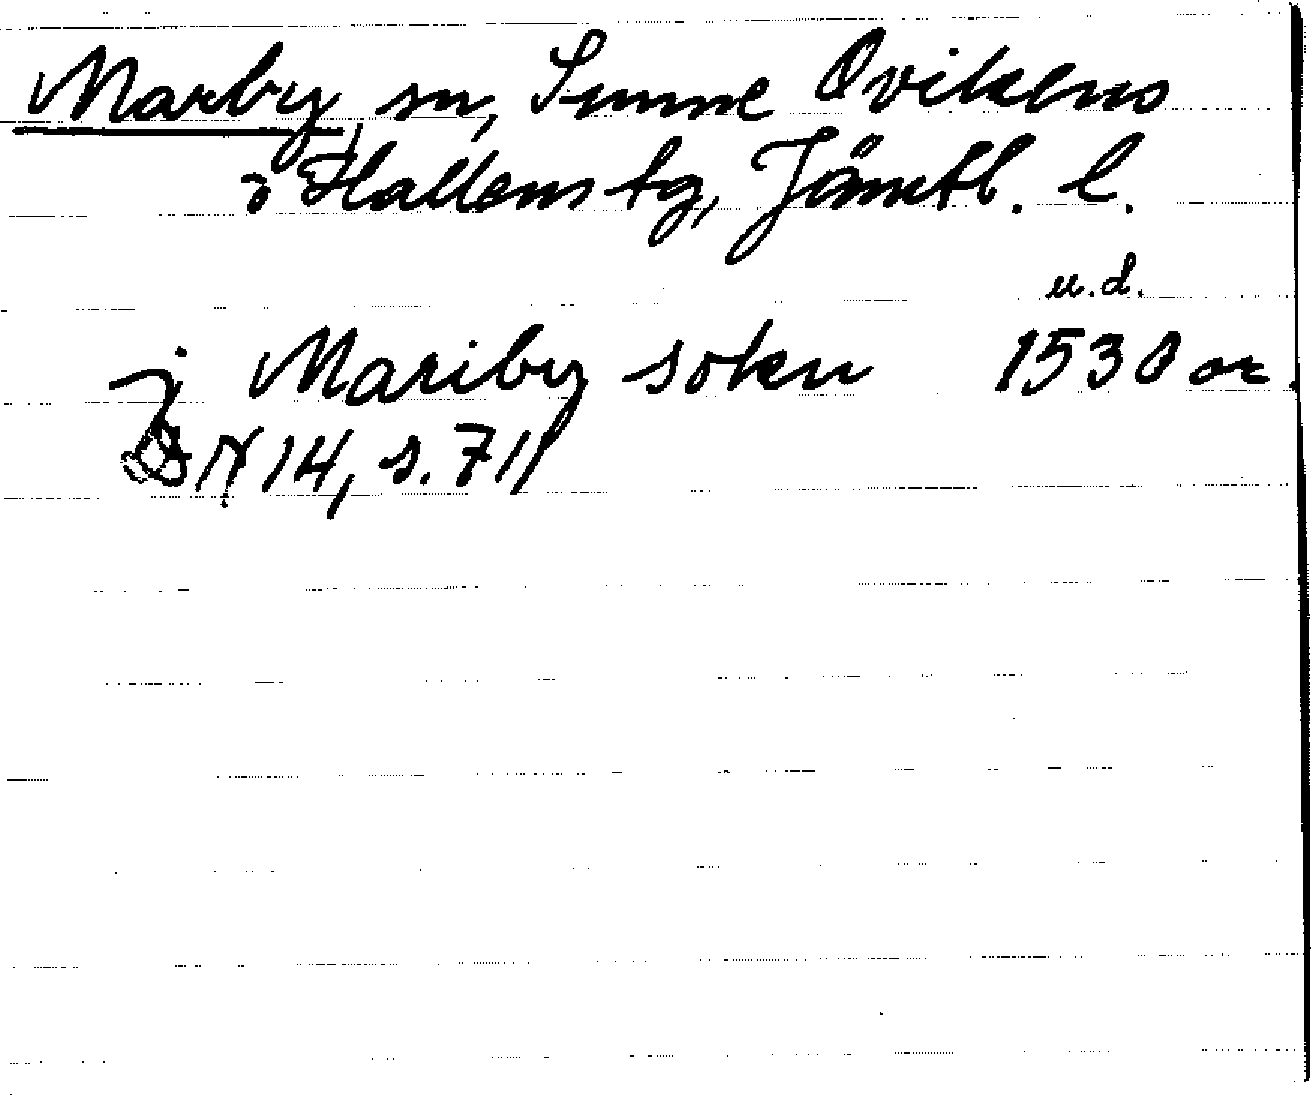 Marby, sn, Sunne Ovikens
o Hallens tg, Jämtl. l.
u.d.
j Mariby soken 1530 or.
DN 14, s. 711